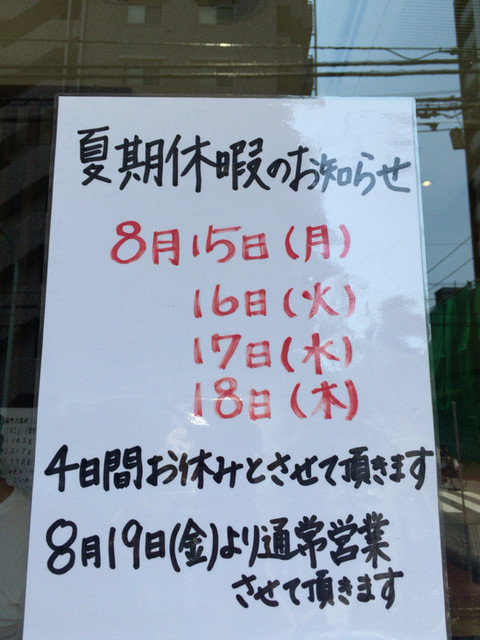 夏期休暇のお知らせ
8月15日(月)
16日(火)
17日(水)
18日(木)
4日間お休みとさせて頂きます
8月19日(金)より通常営業
させて頂きます